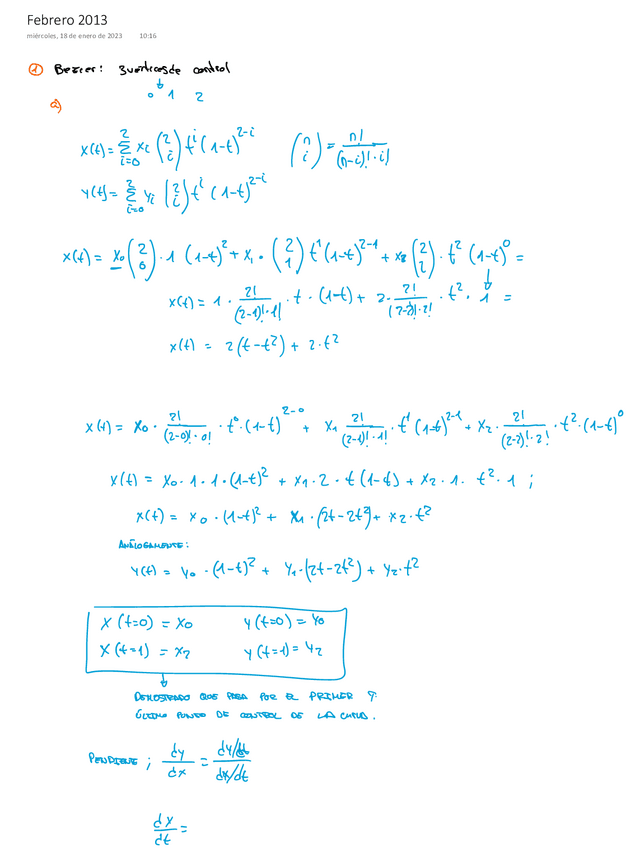 Febrero 2013
miércoles, 18 de enero de 2023 10:16
① Bezier: 3 vertices de control
↓
0 1 2
a)
x(t) = Σ_{i=0}^{2} x_i (2 i) t^i (1-t)^{2-i} (n i) = n! / (n-i)!·i!
y(t) = Σ_{i=0}^{2} y_i (2 i) t^i (1-t)^{2-i}
x(t) = x₀ (2 0) · 1 (1-t)² + x₁ · (2 1) t¹ (1-t)^{2-1} + x₂ (2 2) · t² (1-t)⁰ =
x(t) = 1 · 2! / (2-1)!·1! · t · (1-t) + 2 · 2! / (2-2)!·2! · t² · 1 =
x(t) = 2(t-t²) + 2·t²
x(t) = x₀ · 2! / (2-0)!·0! · t⁰ · (1-t)^{2-0} + x₁ 2! / (2-1)!·1! · t¹ (1-t)^{2-1} + x₂ · 2! / (2-2)!·2! · t² · (1-t)⁰
x(t) = x₀ · 1 · 1 · (1-t)² + x₁ · 2 · t (1-t) + x₂ · 1 · t² · 1 ;
x(t) = x₀ · (1-t)² + x₁ · (2t-2t²) + x₂ · t²
ANÁLOGAMENTE:
y(t) = y₀ · (1-t)² + y₁ · (2t-2t²) + y₂ · t²
x(t=0) = x₀ y(t=0) = y₀
x(t=1) = x₂ y(t=1) = y₂
↓
DEMOSTRADO QUE PASA POR EL PRIMER Y
ÚLTIMO PUNTO DE CONTROL DE LA CURVA.
PENDIENTE ; dy/dx = dy/dt / dx/dt
dx/dt =